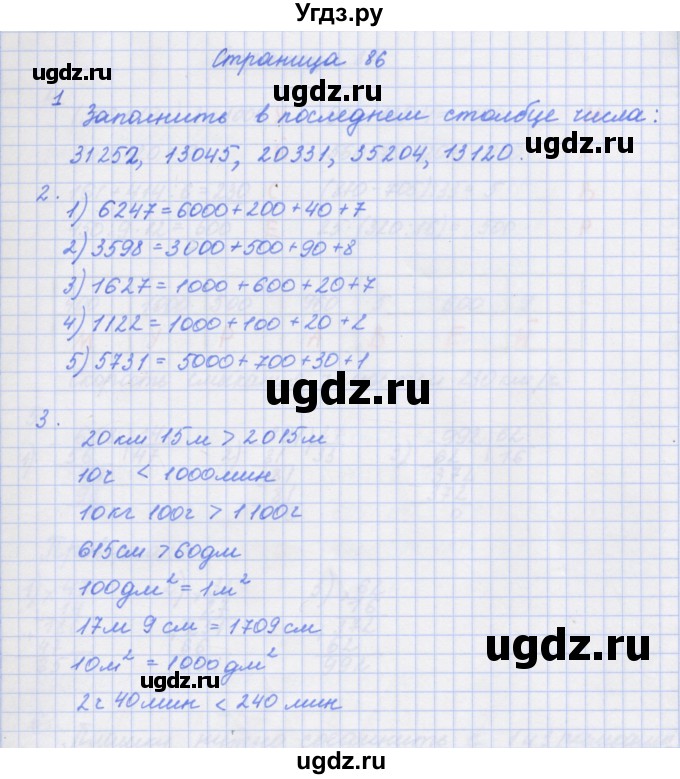 Угдз.ру
Страница 86
1 Заполнить в последнем столбце числа:
31252, 13045, 20331, 35204, 13120.
2.
1) 6247=6000+200+40+7
2) 3598=3000+500+90+8
3) 1627=1000+600+20+7
4) 1122=1000+100+20+2
5) 5731=5000+700+30+1
3.
20км 15м > 2015м
10ч < 1000мин
10кг 100г > 1100г
615см > 60дм
100дм² = 1м²
17м 9см = 1709см
10м² = 1000дм²
2ч 40мин < 240 мин
ugdz.ru
ugdz.ru
ugdz.ru
ugdz.ru
ugdz.ru
ugdz.ru
ugdz.ru
ugdz.ru
ugdz.ru
Угдз.ру